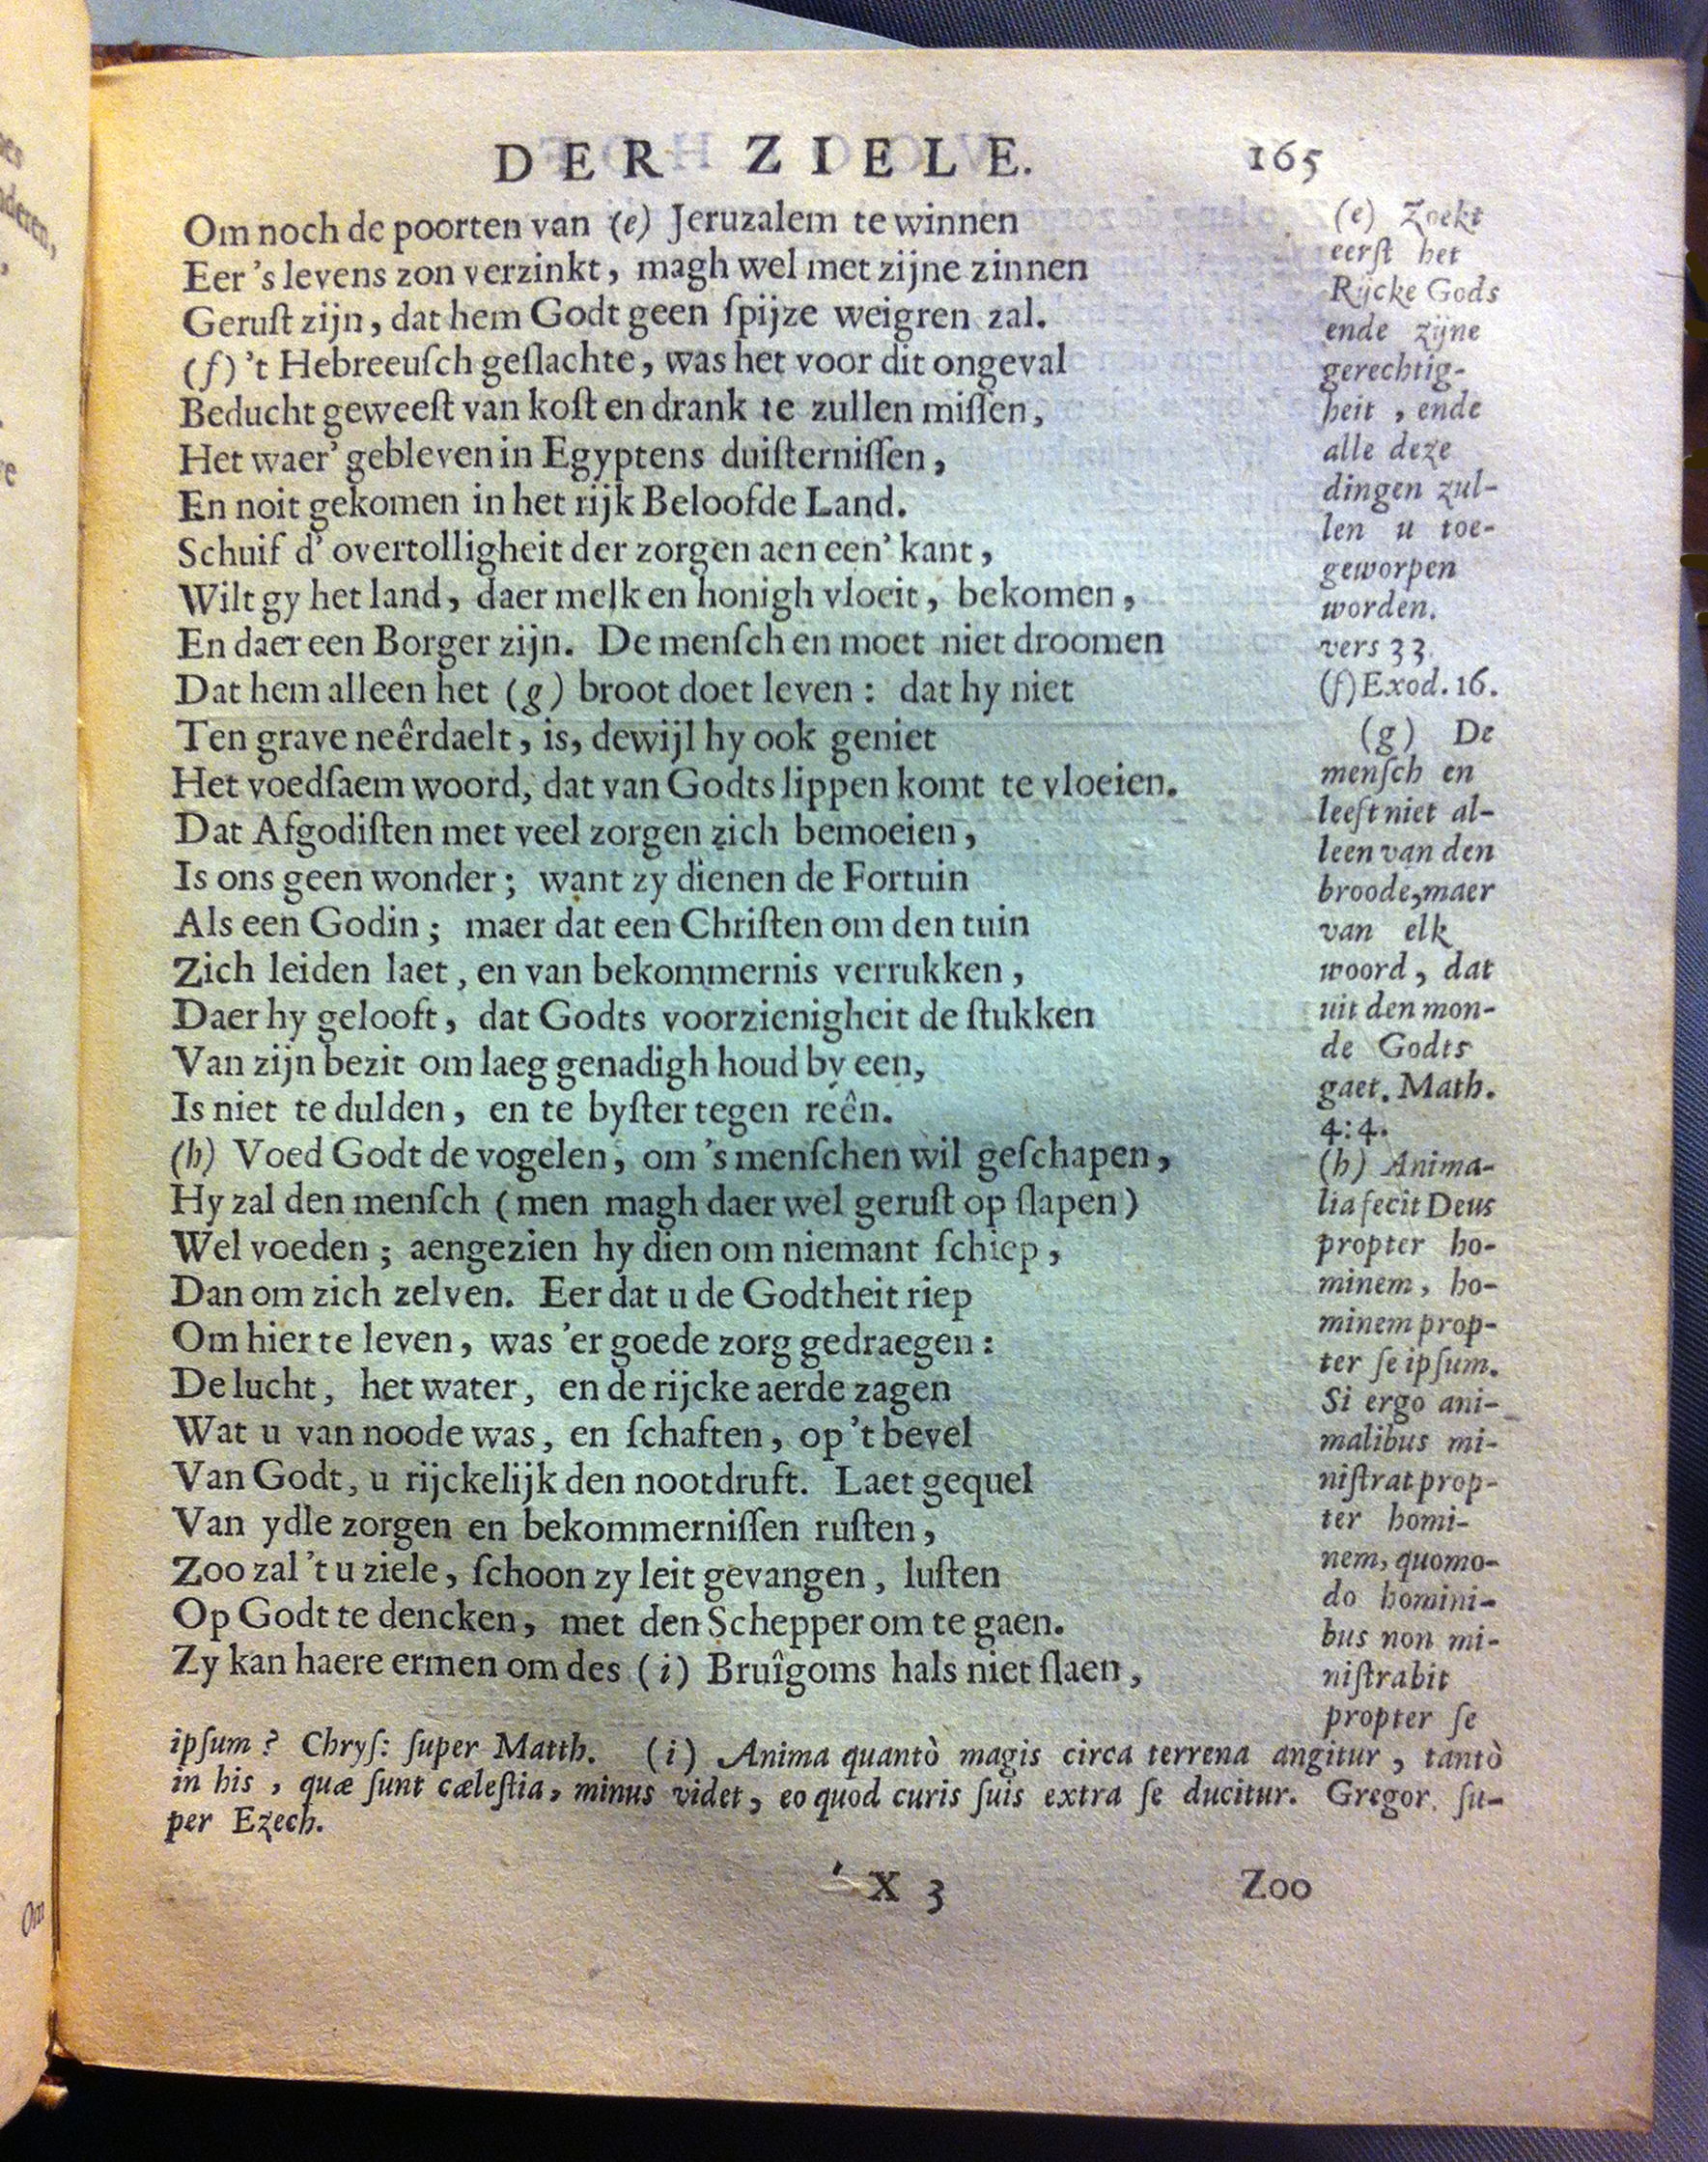 DER ZIELE. 165
Om noch de poorten van (e) Jeruzalem te winnen
Eer 's levens zon verzinkt, magh wel met zijne zinnen
Geruſt zijn, dat hem Godt geen ſpijze weigren zal.
(f) 't Hebreeuſch geſlachte, was het voor dit ongeval
Beducht geweeſt van koſt en drank te zullen miſſen,
Het waer' gebleven in Egyptens duiſterniſſen,
En noit gekomen in het rijk Beloofde Land.
Schuif d' overtolligheit der zorgen aen een' kant,
Wilt gy het land, daer melk en honigh vloeit, bekomen,
En daer een Borger zijn. De menſch en moet niet droomen
Dat hem alleen het (g) broot doet leven: dat hy niet
Ten grave neêrdaelt, is, dewijl hy ook geniet
Het voedſaem woord, dat van Godts lippen komt te vloeien.
Dat Afgodiſten met veel zorgen zich bemoeien,
Is ons geen wonder; want zy dienen de Fortuin
Als een Godin; maer dat een Chriſten om den tuin
Zich leiden laet, en van bekommernis verrukken,
Daer hy gelooft, dat Godts voorzienigheit de ſtukken
Van zijn bezit om laeg genadigh houd by een,
Is niet te dulden, en te byſter tegen reên.
(h) Voed Godt de vogelen, om 's menſchen wil geſchapen,
Hy zal den menſch (men magh daer wel geruſt op ſlapen)
Wel voeden; aengezien hy dien om niemant ſchiep,
Dan om zich zelven. Eer dat u de Godtheit riep
Om hier te leven, was 'er goede zorg gedraegen:
De lucht, het water, en de rijcke aerde zagen
Wat u van noode was, en ſchaften, op 't bevel
Van Godt, u rijckelijk den nootdruft. Laet gequel
Van ydle zorgen en bekommerniſſen ruſten,
Zoo zal 't u ziele, ſchoon zy leit gevangen, luſten
Op Godt te dencken, met den Schepper om te gaen.
Zy kan haere ermen om des (i) Bruîgoms hals niet ſlaen,
(e) Zoekt
eerſt het
Rijcke Gods
ende zijne
gerechtig-
heit, ende
alle deze
dingen zul-
len u toe-
geworpen
worden.
vers 33.
(f) Exod. 16.
(g) De
menſch en
leeft niet al-
leen van den
broode, maer
van elk
woord, dat
uit den mon-
de Godts
gaet. Math.
4:4.
(h) Anima-
lia fecit Deus
propter ho-
minem, ho-
minem prop-
ter ſe ipſum.
Si ergo ani-
malibus mi-
niſtrat prop-
ter homi-
nem, quomo-
do homini-
bus non mi-
niſtrabit
propter ſe
ipſum? Chryſ: ſuper Matth. (i) Anima quantò magis circa terrena angitur, tantò
in his, quæ ſunt cæleſtia, minus videt, eo quod curis ſuis extra ſe ducitur. Gregor. ſu-
per Ezech.
X 3 Zoo